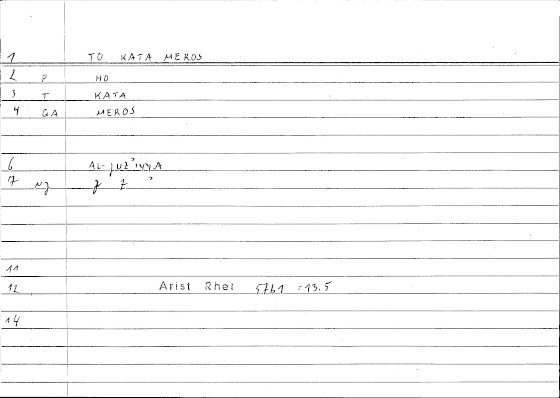 1 TO KATA MEROS
2 P HO
3 T KATA
4 GA MEROS
6 AL-ǧUZ'IYYA
7 NJ ǧ Z '
11
12 Arist Rhet 57b1 =13.5
14